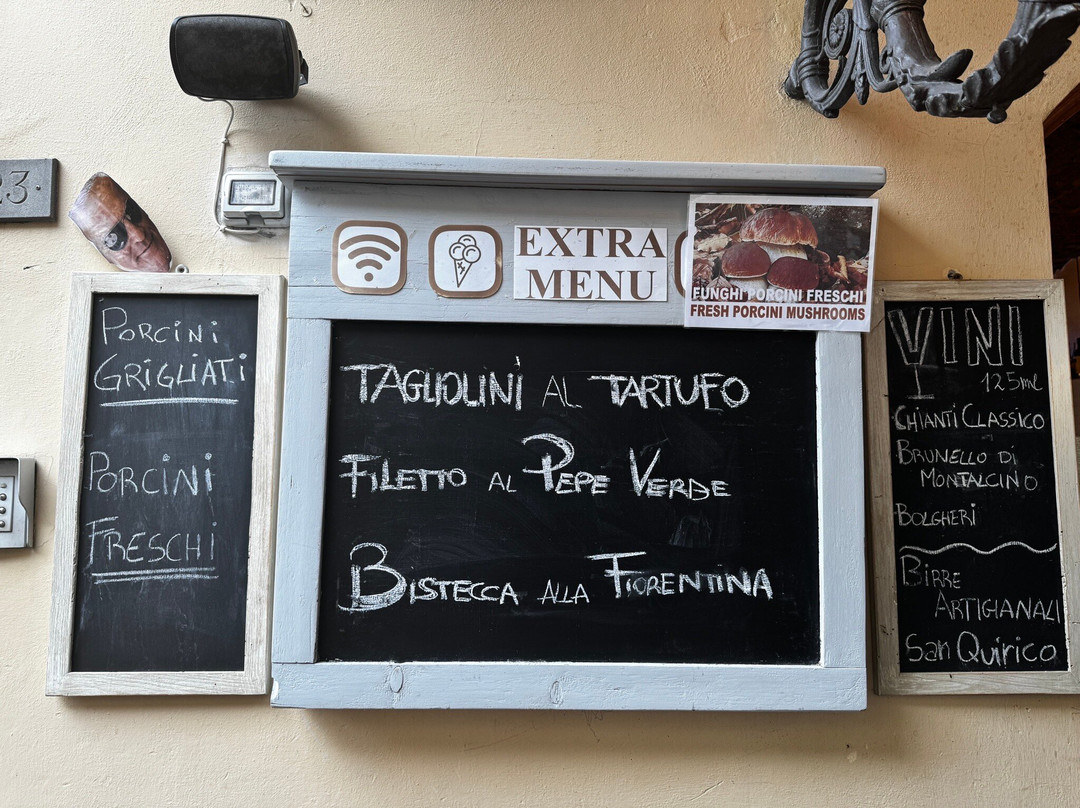 23.
PORCINI
GRIGLIATI
PORCINI
FRESCHI
EXTRA
MENU
FUNGHI PORCINI FRESCHI
FRESH PORCINI MUSHROOMS
TAGLIOLINI AL TARTUFO
FILETTO AL PEPE VERDE
BISTECCA ALLA FIORENTINA
VINI
125ml
CHIANTI CLASSICO
BRUNELLO DI
MONTALCINO
BOLGHERI
BIRRE
ARTIGIANALI
San Quirico